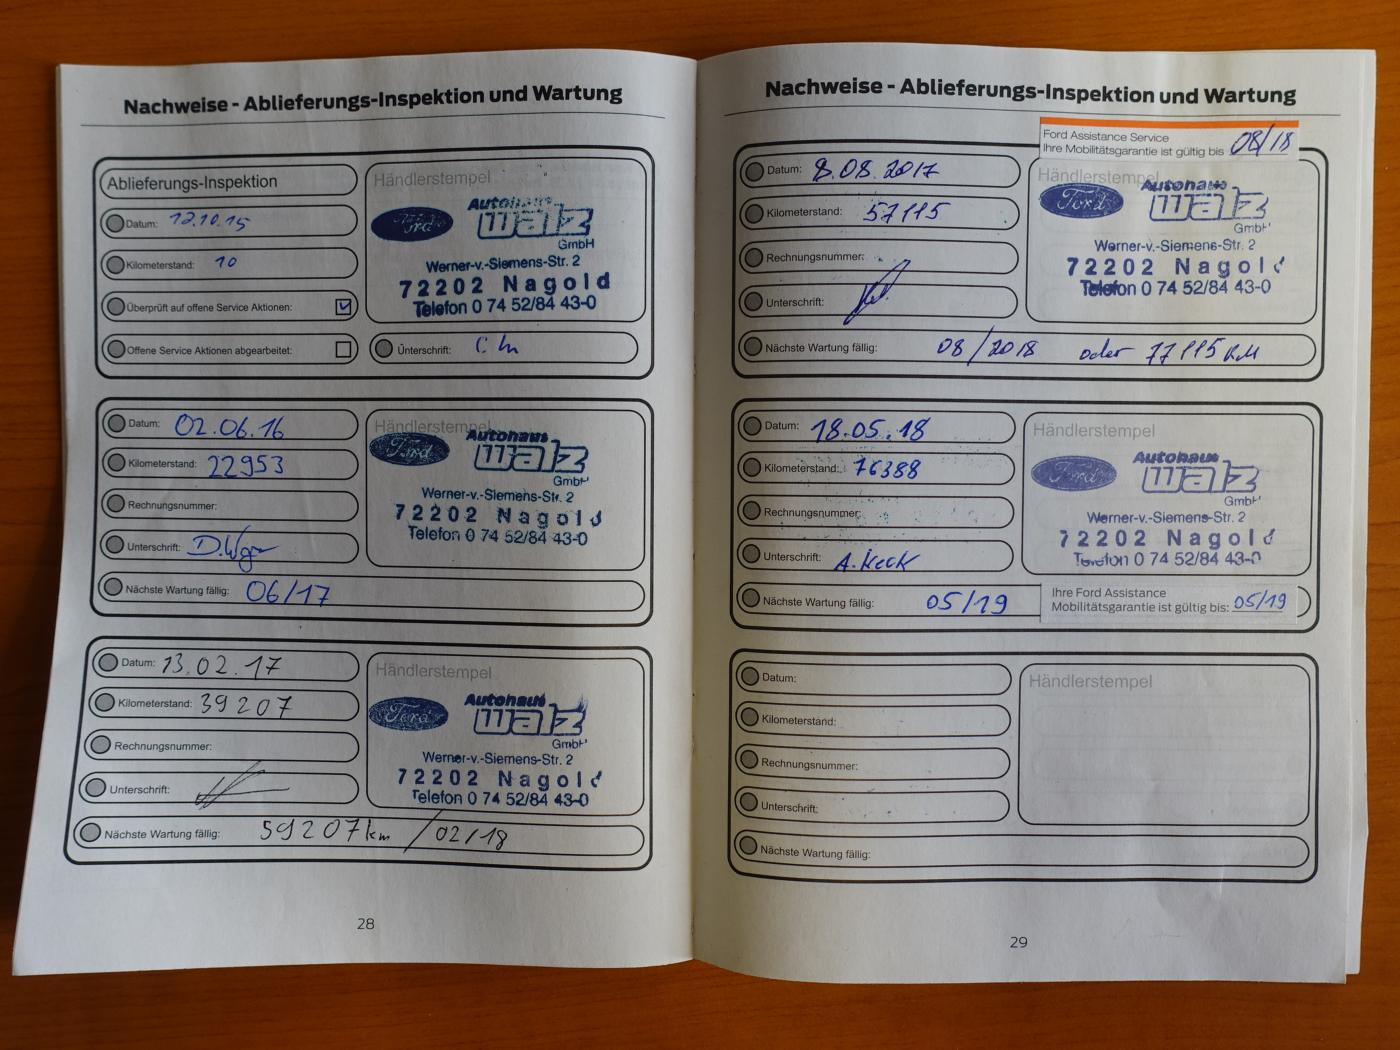 Nachweise - Ablieferungs-Inspektion und Wartung
Ablieferungs-Inspektion
Datum: 12.10.15
Kilometerstand: 10
Überprüft auf offene Service Aktionen:
Offene Service Aktionen abgearbeitet:
Händlerstempel
Ford
Autohaus
walz
GmbH
Werner-v.-Siemens-Str. 2
72202 Nagold
Telefon 0 74 52/84 43-0
Unterschrift:
Datum: 02.06.16
Kilometerstand: 22953
Rechnungsnummer:
Unterschrift:
Händlerstempel
Ford
Autohaus
walz
GmbH
Werner-v.-Siemens-Str. 2
72202 Nagold
Telefon 0 74 52/84 43-0
Nächste Wartung fällig: 06/17
Datum: 13.02.17
Kilometerstand: 39207
Rechnungsnummer:
Unterschrift:
Händlerstempel
Ford
Autohaus
walz
GmbH
Werner-v.-Siemens-Str. 2
72202 Nagold
Telefon 0 74 52/84 43-0
Nächste Wartung fällig: 59207km / 02/18
28
Nachweise - Ablieferungs-Inspektion und Wartung
Ford Assistance Service
Ihre Mobilitätsgarantie ist gültig bis 08/18
Datum: 8.08.2017
Kilometerstand: 57115
Rechnungsnummer:
Unterschrift:
Händlerstempel
Ford
Autohaus
walz
GmbH
Werner-v.-Siemens-Str. 2
72202 Nagold
Telefon 0 74 52/84 43-0
Nächste Wartung fällig: 08/2018 oder 77115 KM
Datum: 18.05.18
Kilometerstand: 76388
Rechnungsnummer:
Unterschrift: A. Keck
Händlerstempel
Ford
Autohaus
walz
GmbH
Werner-v.-Siemens-Str. 2
72202 Nagold
Telefon 0 74 52/84 43-0
Nächste Wartung fällig: 05/19
Ihre Ford Assistance
Mobilitätsgarantie ist gültig bis: 05/19
Datum:
Kilometerstand:
Rechnungsnummer:
Unterschrift:
Händlerstempel
Nächste Wartung fällig:
29